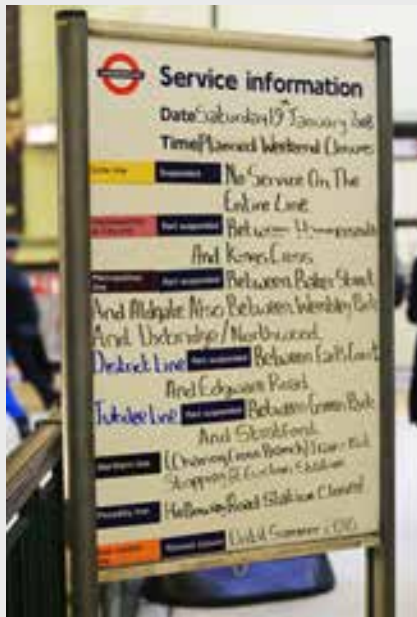 UNDERGROUND
Service information
Date Saturday 19th January 2008
Time Planned Weekend Closures
Circle line Suspended No Service On The
Entire Line
Hammersmith & City line Part suspended Between Hammersmith
And Kings Cross
Metropolitan line Part suspended Between Baker Street
And Aldgate Also Between Wembley Park
And Uxbridge/Northwood
District Line Part suspended Between Earl's Court
And Edgware Road
Jubilee Line Part suspended Between Green Park
And Stratford
Northern line (Charing Cross Branch) Trains Not
Stopping At Euston Station
Piccadilly line Holloway Road Station Closed
Until Summer 2010